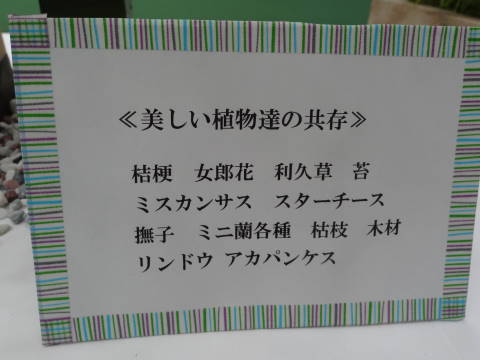 ≪美しい植物達の共存≫
桔梗　女郎花　利久草　苔
ミスカンサス　スターチース
撫子　ミニ蘭各種　枯枝　木材
リンドウ アカパンケス